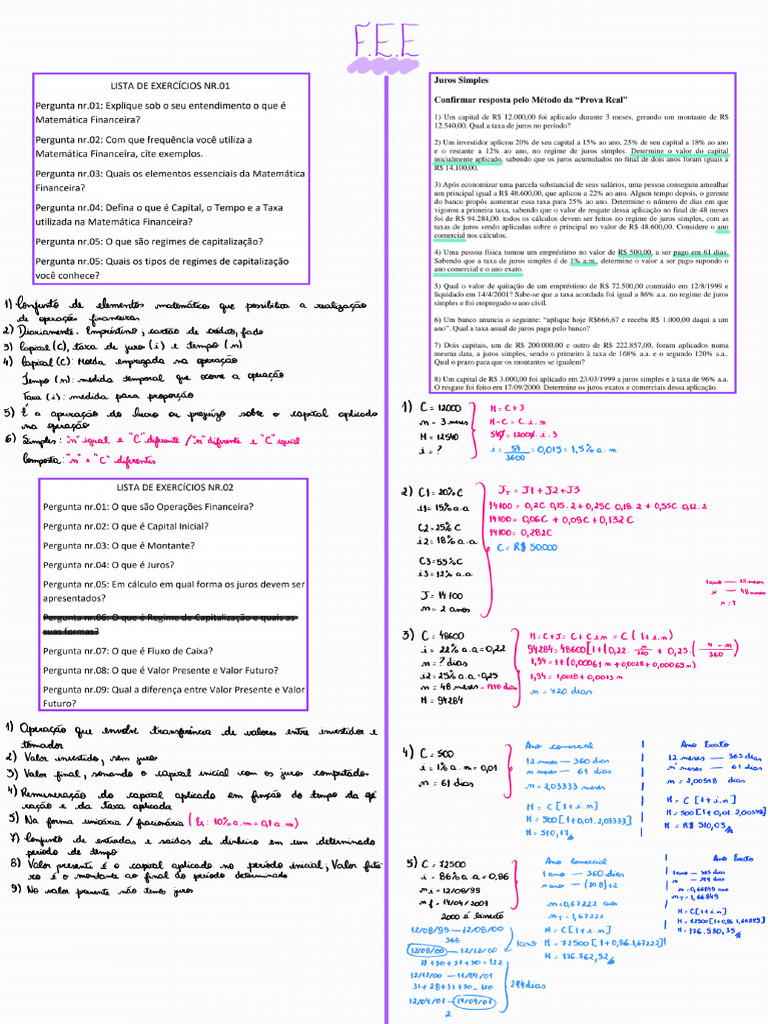 F.E.E
LISTA DE EXERCÍCIOS NR.01
Pergunta nr.01: Explique sob o seu entendimento o que é
Matemática Financeira?
Pergunta nr.02: Com que frequência você utiliza a
Matemática Financeira, cite exemplos.
Pergunta nr.03: Quais os elementos essenciais da Matemática
Financeira?
Pergunta nr.04: Defina o que é Capital, o Tempo e a Taxa
utilizada na Matemática Financeira?
Pergunta nr.05: O que são regimes de capitalização?
Pergunta nr.05: Quais os tipos de regimes de capitalização
você conhece?
1) Conjunto de elementos matemáticos que possibilita a realização
de operações financeiras
2) Diariamente. Empréstimo, cartão de crédito,
3) Capital (C), taxa de juro (i) e tempo (n)
4) Capital (C): Moeda empregada na operação
Tempo (n): medida temporal que ocorre a operação
Taxa (i): medida para proporção
5) É a apuração do lucro ou prejuízo sobre o capital aplicado
na operação
6) Simples: "n" igual e "C" diferente / "n" diferente e "C" igual
Composta: "n" e "C" diferentes
LISTA DE EXERCÍCIOS NR.02
Pergunta nr.01: O que são Operações Financeira?
Pergunta nr.02: O que é Capital Inicial?
Pergunta nr.03: O que é Montante?
Pergunta nr.04: O que é Juros?
Pergunta nr.05: Em cálculo em qual forma os juros devem ser
apresentados?
Pergunta nr.06: O que é Regime de Capitalização e quais as
suas formas?
Pergunta nr.07: O que é Fluxo de Caixa?
Pergunta nr.08: O que é Valor Presente e Valor Futuro?
Pergunta nr.09: Qual a diferença entre Valor Presente e Valor
Futuro?
1) Operação que envolve transferência de valores entre investidor e
tomador
2) Valor investido, sem juro
3) Valor final, somando o capital inicial com os juros computados
4) Remuneração do capital aplicado em função do tempo da ope
ração e da Taxa aplicada
5) Na forma unitária / fracionária (Ex: 10% a.m = 0,1 a.m)
7) Conjunto de entradas e saídas de dinheiro em um determinado
período de tempo
8) Valor presente é o capital aplicado no período inicial; Valor futu
ro é o montante ao final do período determinado
9) No valor presente não temos juros
Juros Simples
Confirmar resposta pelo Método da “Prova Real”
1) Um capital de R$ 12.000,00 foi aplicado durante 3 meses, gerando um montante de R$
12.540,00. Qual a taxa de juros no período?
2) Um investidor aplicou 20% de seu capital a 15% ao ano, 25% de seu capital a 18% ao ano
e o restante a 12% ao ano, no regime de juros simples. Determine o valor do capital
inicialmente aplicado, sabendo que os juros acumulados no final de dois anos foram iguais a
R$ 14.100,00.
3) Após economizar uma parcela substancial de seus salários, uma pessoa conseguiu amealhar
um principal igual a R$ 48.600,00, que aplicou a 22% ao ano. Algum tempo depois, o gerente
do banco propôs aumentar essa taxa para 25% ao ano. Determine o número de dias em que
vigorou a primeira taxa, sabendo que o valor de resgate dessa aplicação no final de 48 meses
foi de R$ 94.284,00. todos os cálculos devem ser feitos no regime de juros simples, com as
taxas de juros sendo aplicadas sobre o principal no valor de R$ 48.600,00. Considere o ano
comercial nos cálculos.
4) Uma pessoa física tomou um empréstimo no valor de R$ 500,00, a ser pago em 61 dias.
Sabendo que a taxa de juros simples é de 1% a.m., determine o valor a ser pago supondo o
ano comercial e o ano exato.
5) Qual o valor de quitação de um empréstimo de R$ 72.500,00 contraído em 12/8/1999 e
liquidado em 14/4/2001? Sabe-se que a taxa acordada foi igual a 86% a.a. no regime de juros
simples e foi empregado o ano civil.
6) Um banco anuncia o seguinte: “aplique hoje R$666,67 e receba R$ 1.000,00 daqui a um
ano”. Qual a taxa anual de juros paga pelo banco?
7) Dois capitais, um de R$ 200.000,00 e outro de R$ 222.857,00, foram aplicados numa
mesma data, a juros simples, sendo o primeiro à taxa de 168% a.a. e o segundo 120% a.a..
Qual o prazo para que os montantes se igualem?
8) Um capital de R$ 3.000,00 foi aplicado em 23/03/1999 a juros simples e à taxa de 96% a.a.
O resgate foi feito em 17/09/2000. Determine os juros exatos e comerciais dessa aplicação.
1) C = 12000
n = 3 meses
M = 12540
i = ?
M = C + J
M - C = C.i.n
540 = 12000.i.3
i = 54/3600 = 0,015 = 1,5% a.m
2) C1 = 20% C
i1 = 15% a.a
C2 = 25% C
i2 = 18% a.a
C3 = 55% C
i3 = 12% a.a
J = 14100
n = 2 anos
JT = J1 + J2 + J3
14100 = 0,2C.0,15.2 + 0,25C.0,18.2 + 0,55C.0,12.2
14100 = 0,06C + 0,09C + 0,132C
14100 = 0,282C
C = R$ 50.000
1 ano — 12 meses
x — 48 meses
3) C = 48600
i = 22% a.a = 0,22
n = ? dias
i2 = 25% a.a = 0,25
n = 48 meses = 1440 dias
M = 94284
M = C + J = C + C.i.n = C(1 + i.n)
94284 = 48600[1 + (0,22. n/360 + 0,25.(4 - n/360)
n = 720 dias
4) C = 500
i = 1% a.m = 0,01
n = 61 dias
Ano comercial
12 meses — 360 dias
n meses — 61 dias
n = 2,03333 meses
M = C[1 + i.n]
M = 500[1 + 0,01.2,03333]
M = 510,17
Ano Exato
12 meses — 365 dias
n meses — 61 dias
n = 2,00548 dias
M = C[1 + i.n]
M = 500[1 + 0,01.2,00548]
M = R$ 510,03
5) C = 72500
i = 86% a.a = 0,86
ni = 12/08/99
nf = 14/04/2001
2000 é bissexto
12/08/99 — 12/08/00
366
1 ano
12/08/00 — 12/12/00
31 + 30 + 31 + 30 = 122
12/12/00 — 12/04/01
31 + 28 + 31 + 31 - 120
12/04/01 — 14/04/01
2
244 dias
Ano Comercial
1 ano — 360 dias
n ano — (30.8)+2
n = 0,67222 ano
nT = 1,67222
M = C[1 + i.n]
M = 72500[1 + 0,86.1,67222]
M = 176.762,92
Ano Exato
1 ano — 365 dias
n — 244 dias
n = 0,66849 ano
nT = 1,66849
M = C[1 + i.n]
M = 72500[1 + 0,86.1,66849]
M = 176.530,35